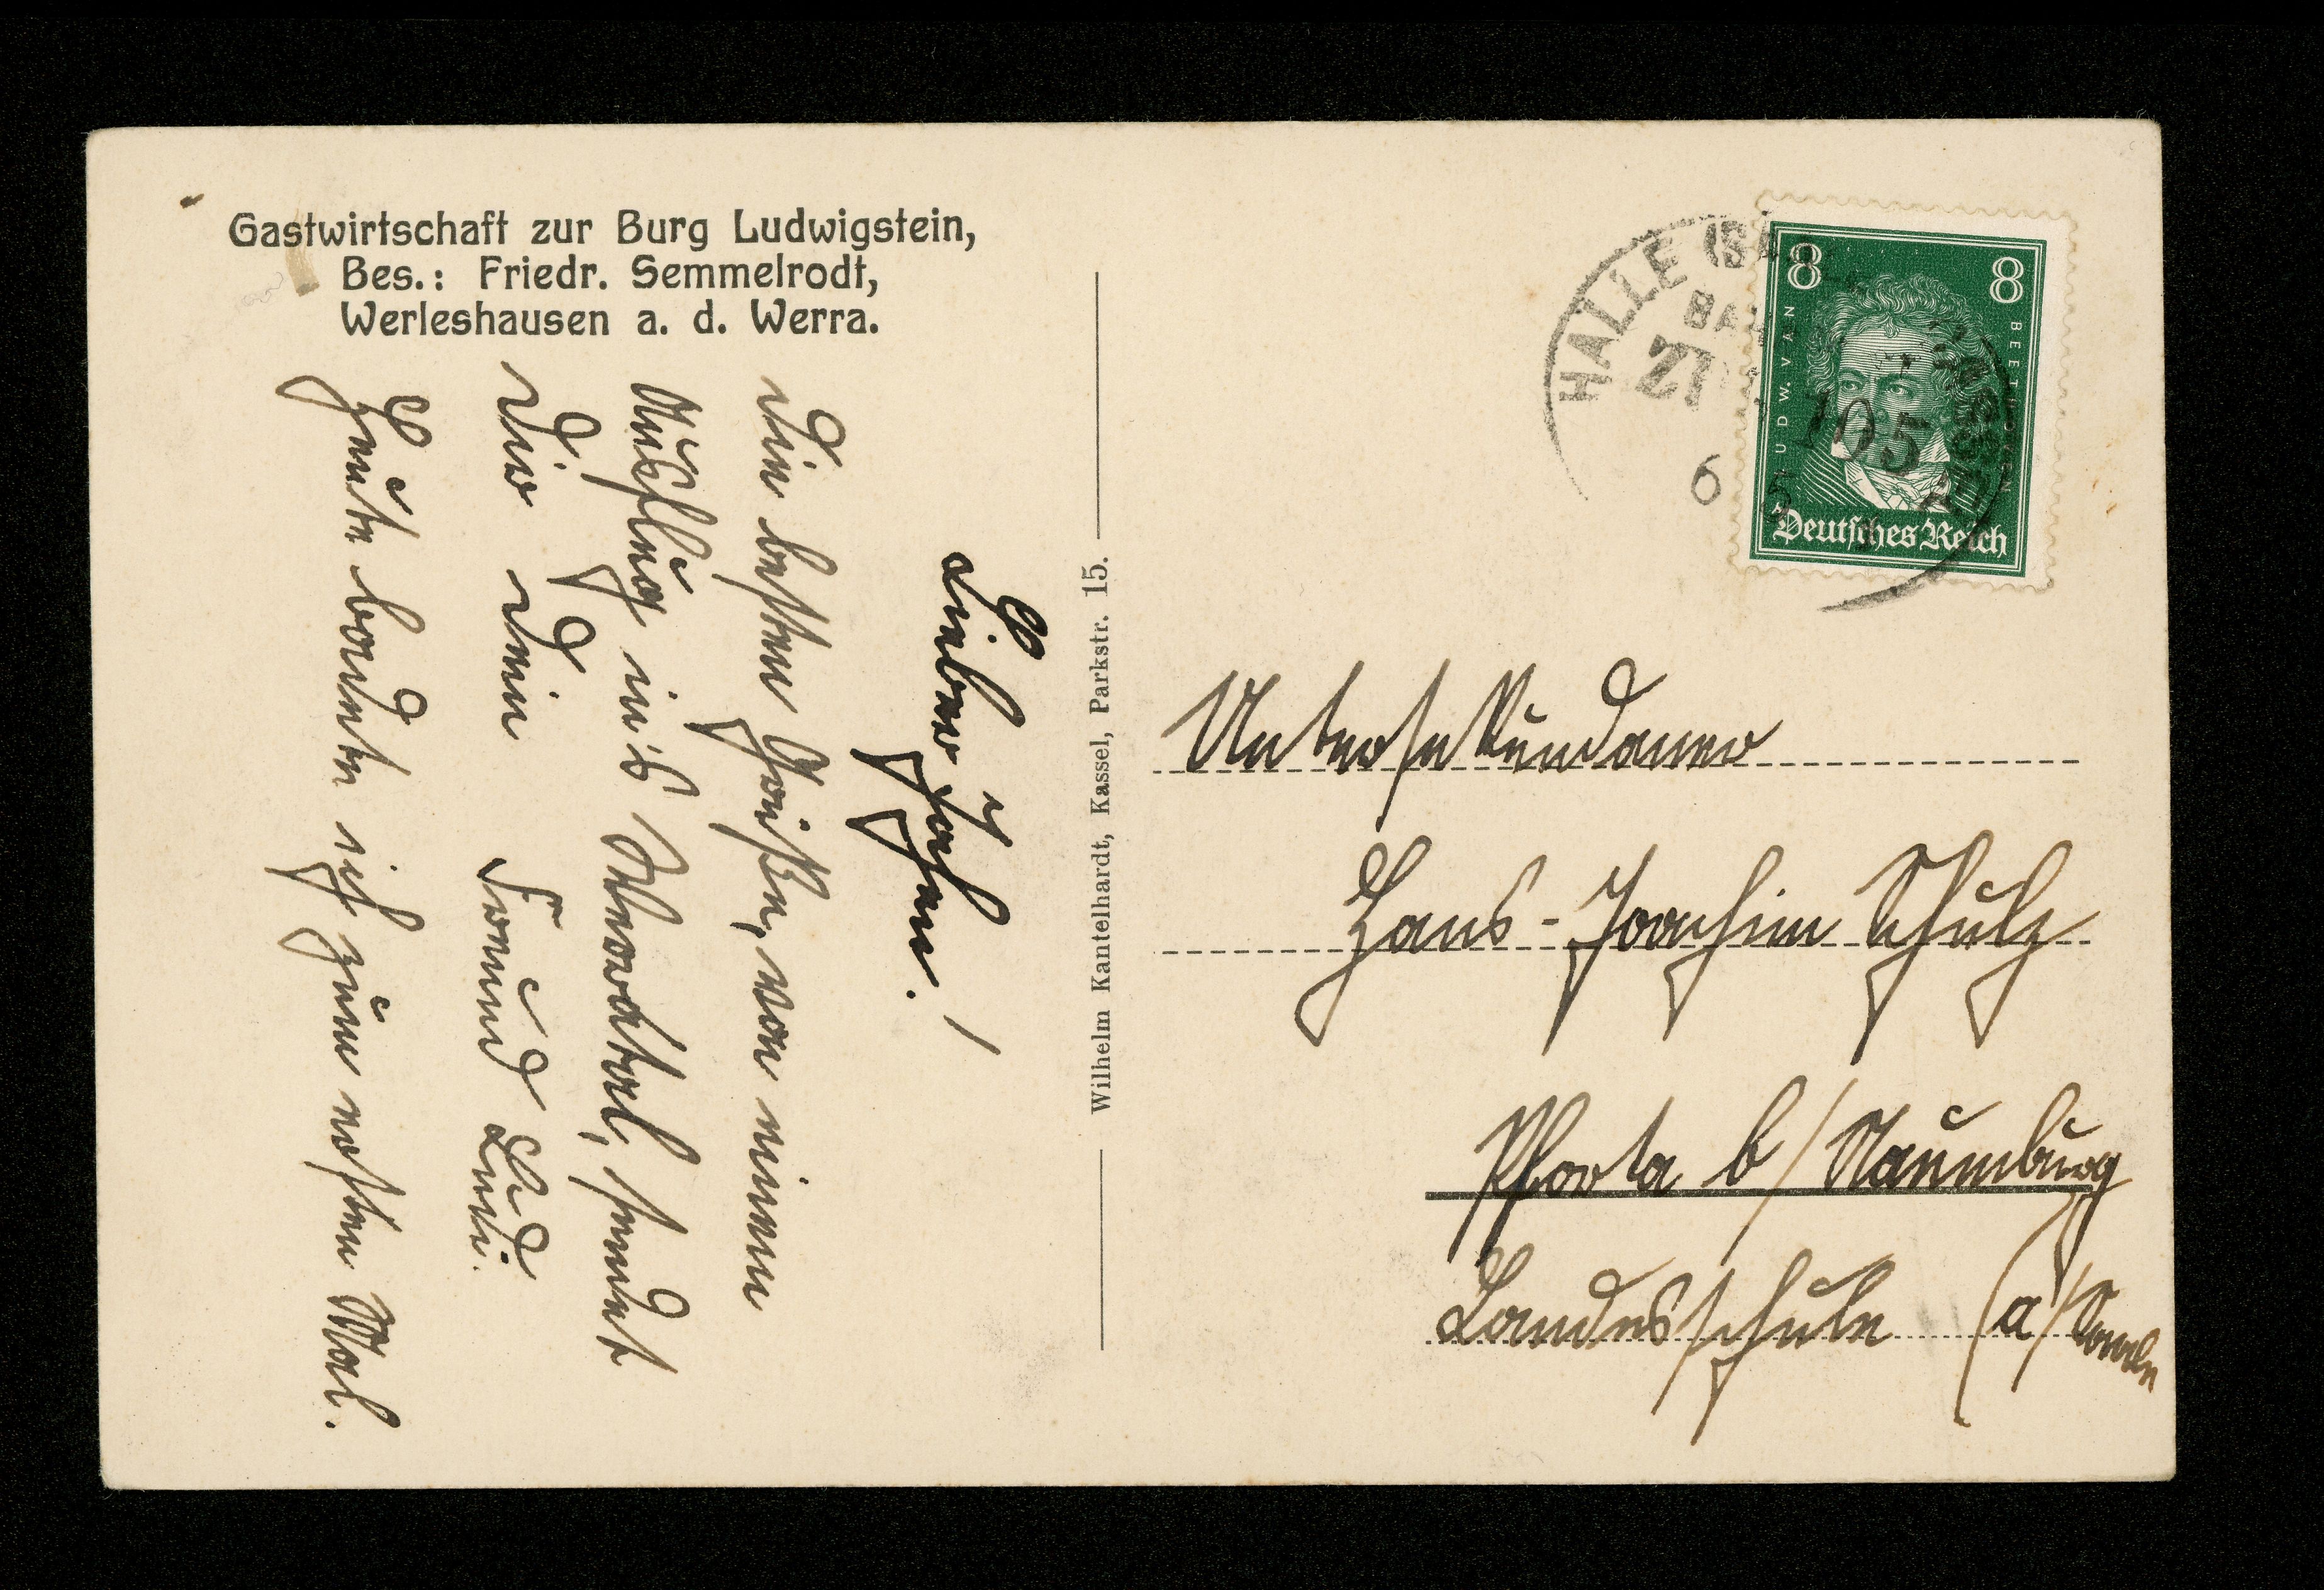 Gastwirtschaft zur Burg Ludwigstein,
Bes.: Friedr. Semmelrodt,
Werleshausen a. d. Werra.
Lieber Jochen!
Die besten Grüße, von einem
Ausflug in's Werratal, sendet
Dir Dein
Freund Ludi.
Heute badete ich zum ersten Mal.
Wilhelm Kantelhardt, Kassel, Parkstr. 15.
HALLE (S
21
105
6
8 8
LUDW. VAN BEETHOVEN
Deutsches Reich
Untersekundaner
Hans-Joachim Schulz
Pforta b/Naumburg
Landesschule (a/Saale